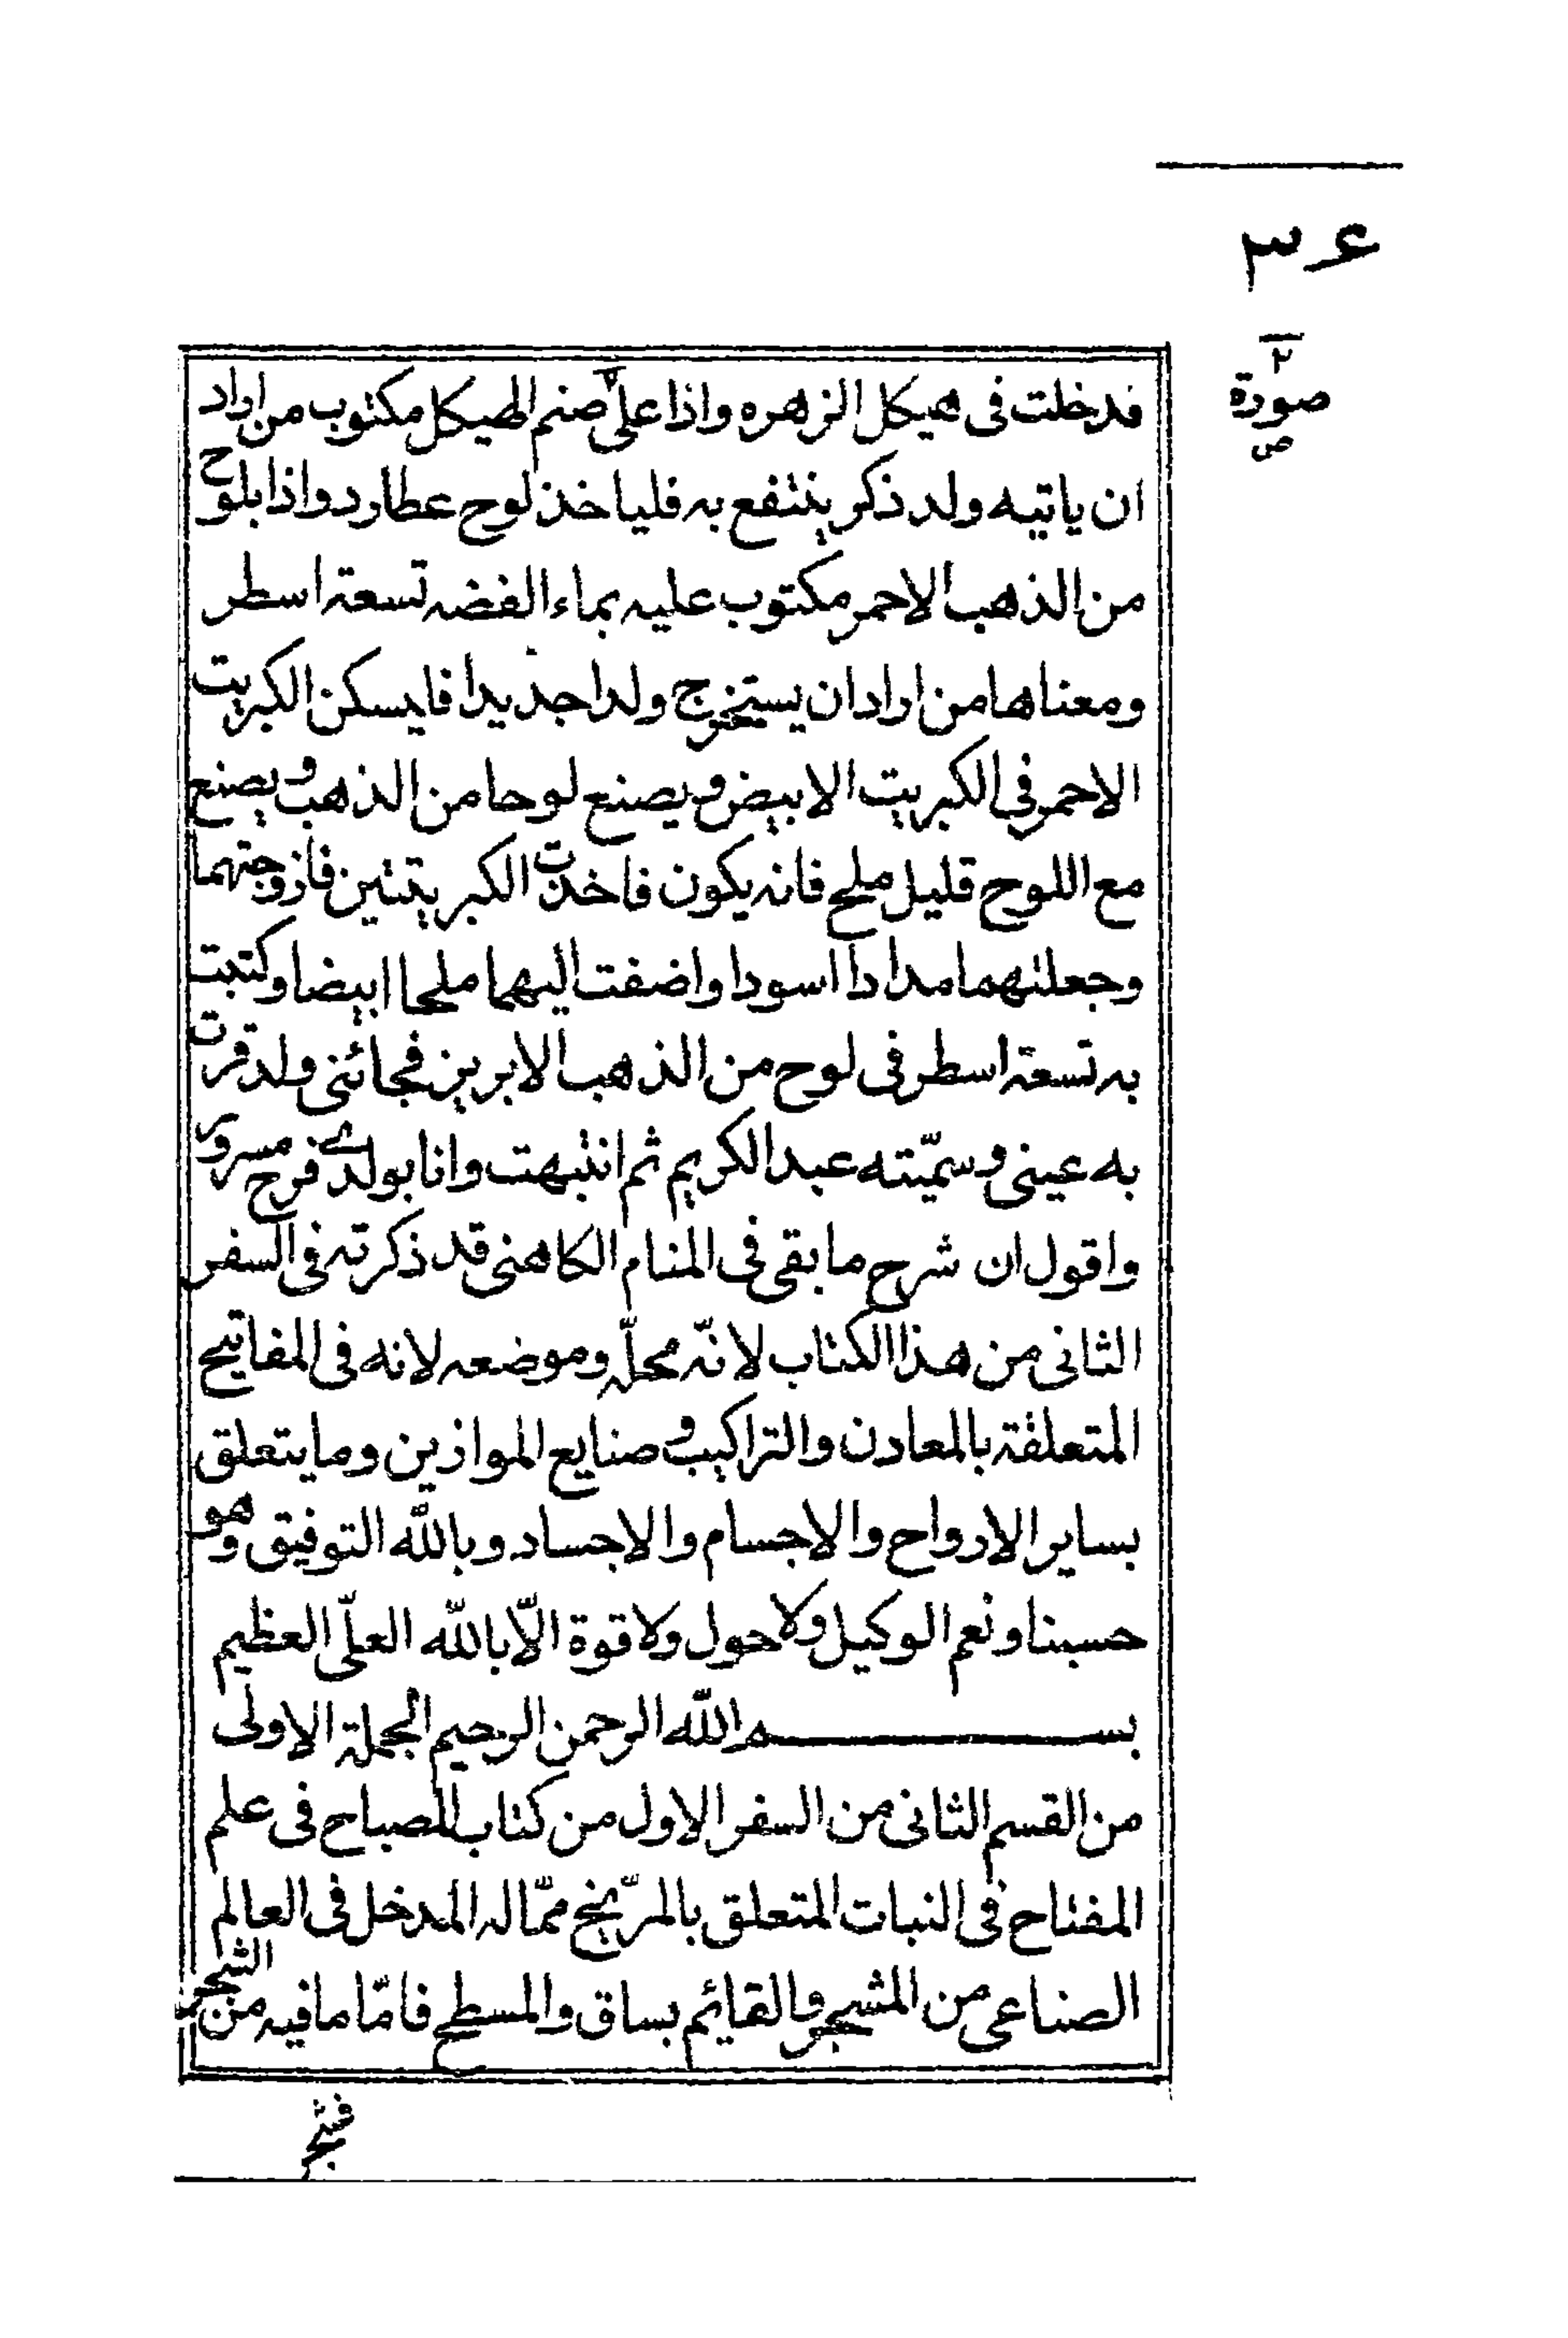 ٣٤
٢
صورة
ص
فدخلت فى هيكل الزهره واذا على صنم الهيكل مكتوب من اراد
ان ياتيه ولد ذكر ينتفع به فلياخذ لوح عطارد واذا بلوح
من الذهب الاحمر مكتوب عليه بماء الفضه تسعة اسطر
ومعناها من اراد ان يستخرج ولدا جديدا فليسكن الكبريت
الاحمر فى الكبريت الابيض ويصنع لوحا من الذهب ويصنع
مع اللوح قليل ملح فانه يكون فاخذت الكبريتتين فازوجتهما
وجعلتهما مدادا اسودا واضفت اليهما ملحا ابيضا وكتبت
به تسعة اسطر فى لوح من الذهب الابريز فجائنى ولد قرت
به عينى وسمّيته عبد الكريم ثم انتبهت وانا بولدى فرح مسرور
واقول ان شرح ما بقى فى المنام الكاهنى قد ذكرته فى السفر
الثانى من هذا الكتاب لانّه محلّه وموضعه لانه فى المفاتيح
المتعلقة بالمعادن والتراكيب وصنايع الموازين وما يتعلق
بساير الارواح والاجسام والاجساد وبالله التوفيق وهو
حسبنا ونعم الوكيل ولا حول ولا قوة الّا بالله العلّى العظيم
بسم الله الرحمن الرحيم الجملة الاولى
من القسم الثانى من السفر الاول من كتاب المصباح فى علم
المفتاح فى النبات المتعلق بالمرّيخ ممّا له المدخل فى العالم
الصناعى من المشجر والقايم بساق والمسطح فامّا ما فيه من الشجر